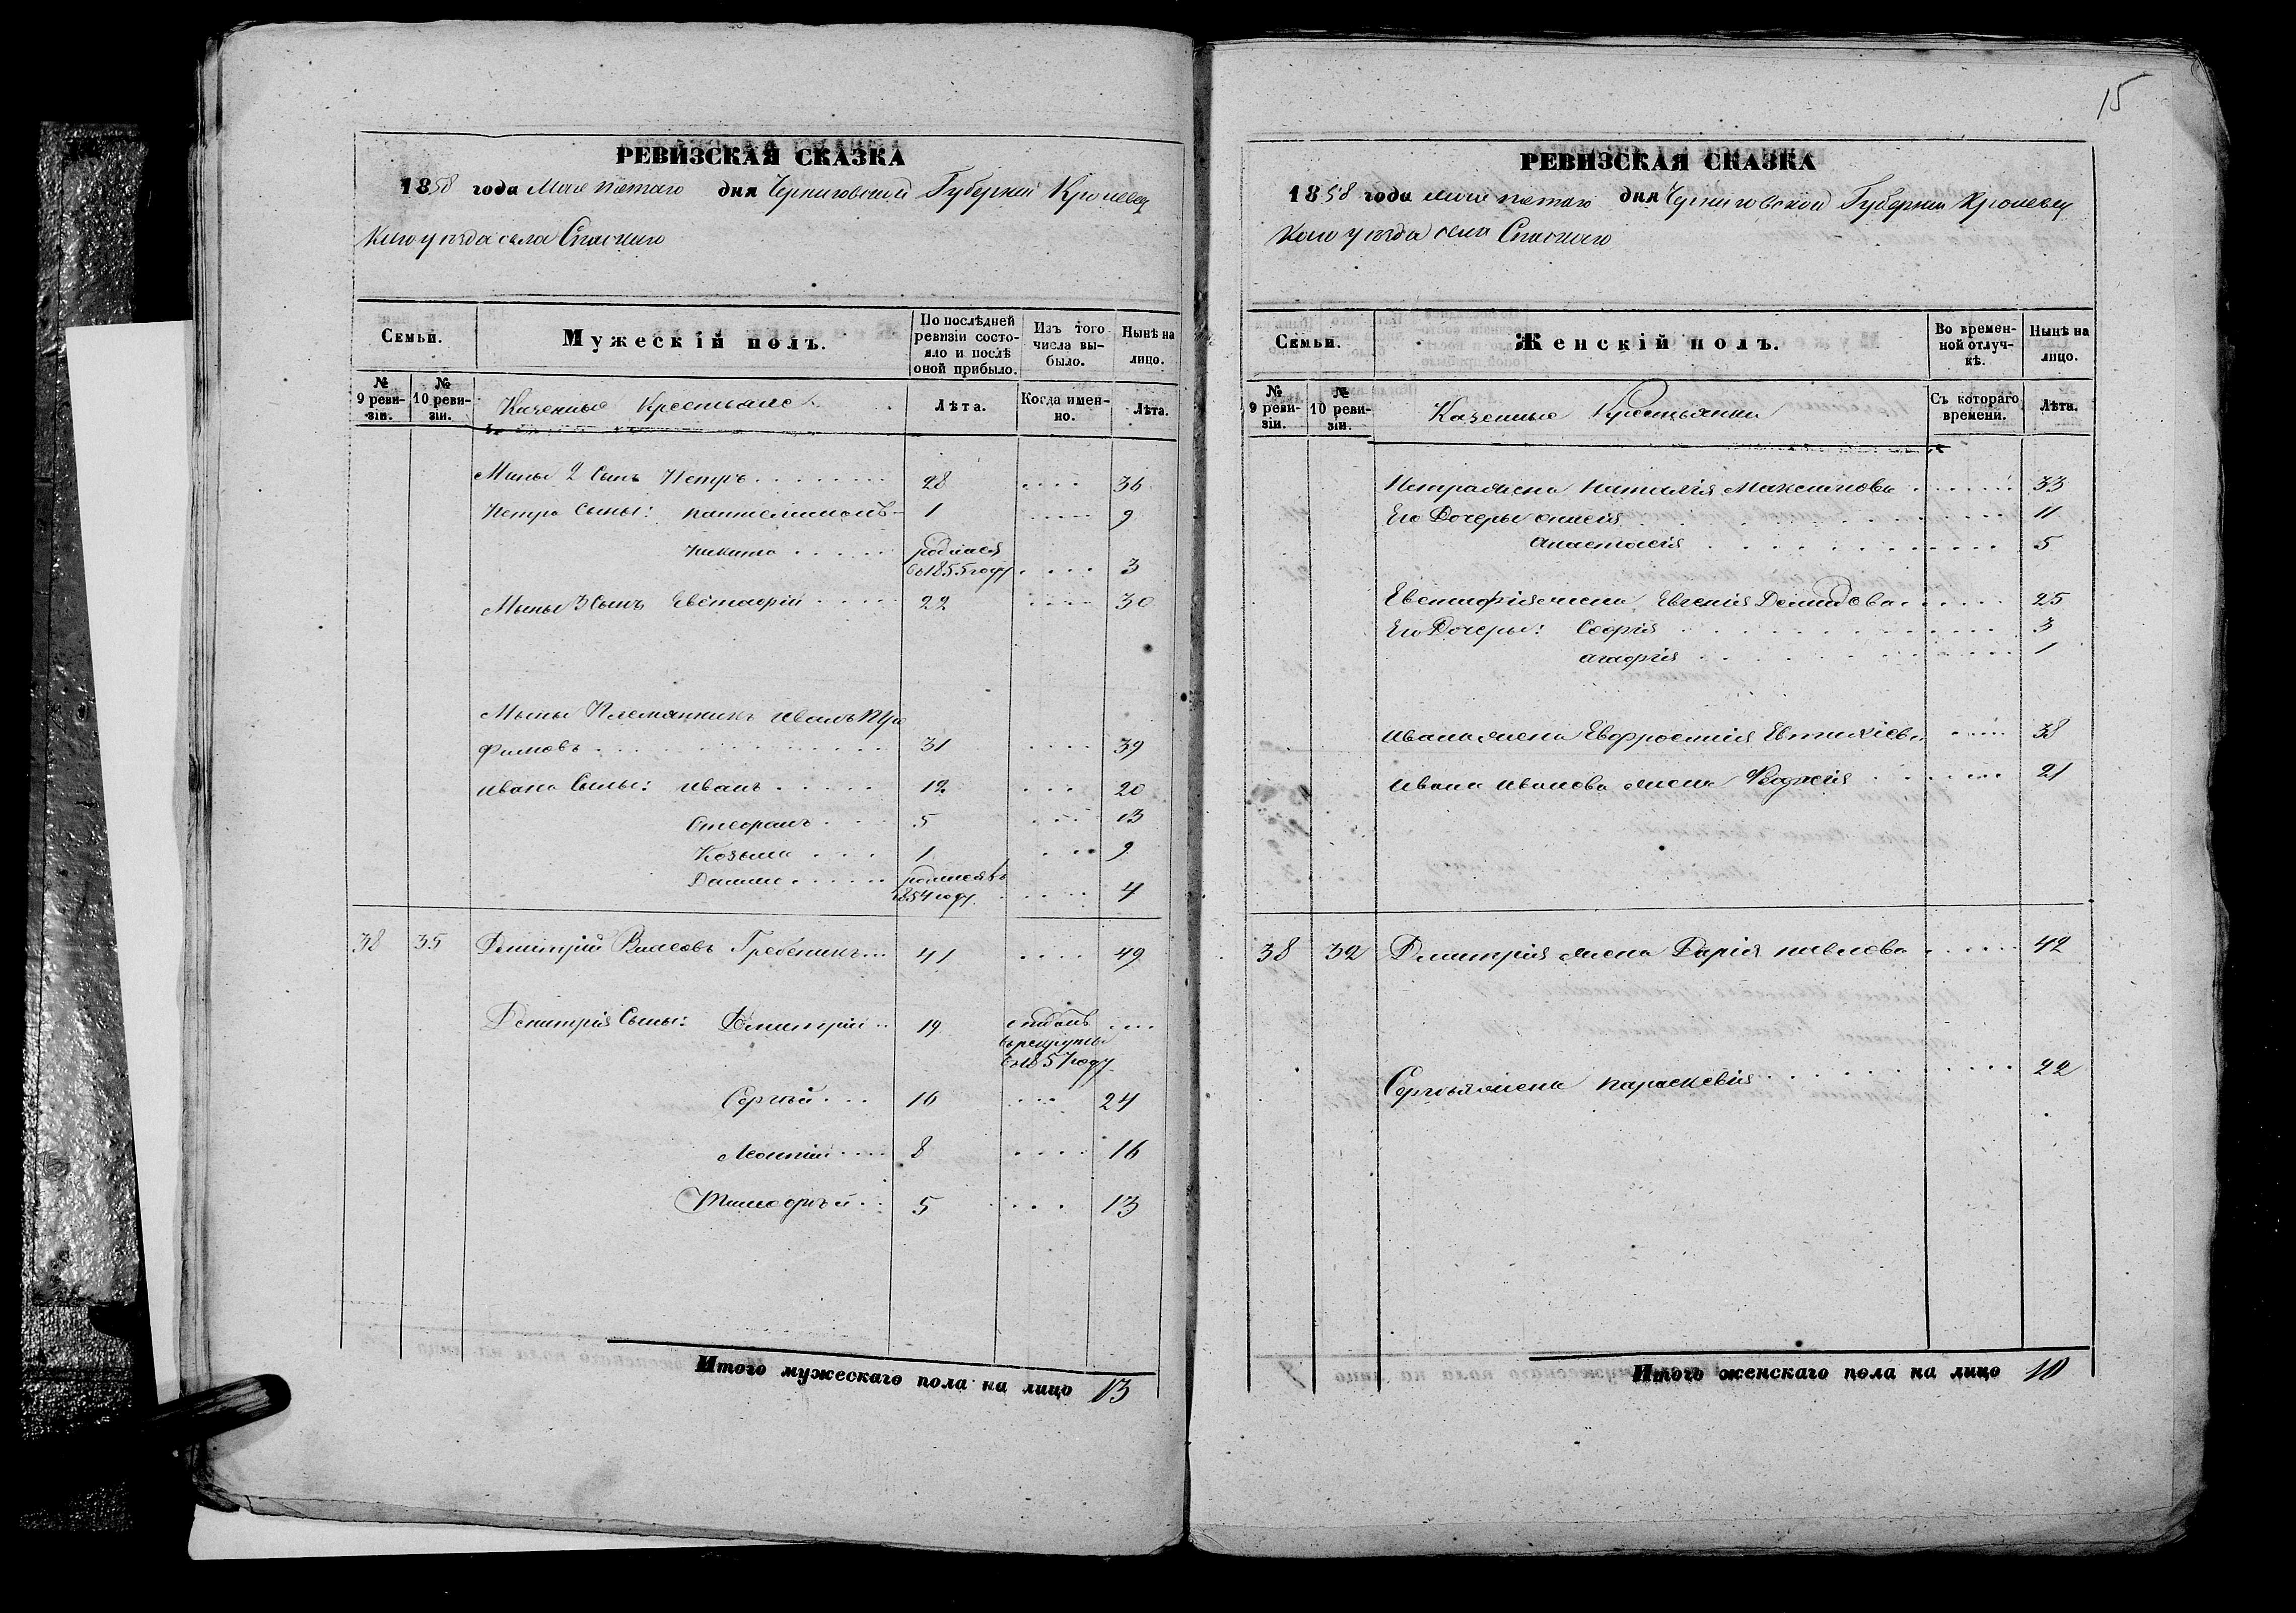 РЕВИЗСКАЯ СКАЗКА
1858 года Мая пятаго дня Черниговской Губерніи Кролевец
каго уезда села Спаскаго
Семьи.
Мужескій полъ.
По послѣдней ревизіи состояло и послѣ оной прибыло.
Изъ того числа выбыло.
Нынѣ на лицо.
№ 9 ревизіи.
№ 10 ревизіи.
Казенные Крестьяне
Лѣта.
Когда именно.
Лѣта.
Мины 2 Сынъ Петръ 28 36
Петра Сыны: Пантелимонъ 1 9
Никита родился въ 1855 году 3
Мины 3 Сынъ Евстафій 22 30
Мины Племянникъ Иванъ Тро
фимовъ 31 39
Ивана Сыны: Иванъ 12 20
Стефанъ 5 13
Козьма 1 9
родился въ 1854 году 4
38 35 Дмитрій Власовъ Гребеникъ 41 49
Дмитрія Сыны: Дмитрій 19 отданъ въ рекруты въ 1857 году
Сергѣй 16 24
Леонтій 8 16
Тимофѣй 5 13
Итого мужескаго пола на лицо 13
15
РЕВИЗСКАЯ СКАЗКА
1858 года мая пятаго дня Черниговской Губерніи Кролевец
каго уезда села Спаскаго
Семьи.
Женскій полъ.
Во временной отлучкѣ.
Нынѣ на лицо.
№ 9 ревизіи.
№ 10 ревизіи.
Казенные Крестьянки
Съ котораго времени.
Лѣта.
Петра жена Наталія Максимова 33
Его Дочеры 11
Анастасія 5
Евстафія жена Евгенія Демидова 25
Его Дочеры: Софія 3
Агафія 1
Ивана жена Евфросинія Евтихіева 38
Ивана Иванова жена 21
38 32 Дмитрія жена Дарія Павлова 42
Сергѣя жена Параскевія 22
Итого женскаго пола на лицо 10